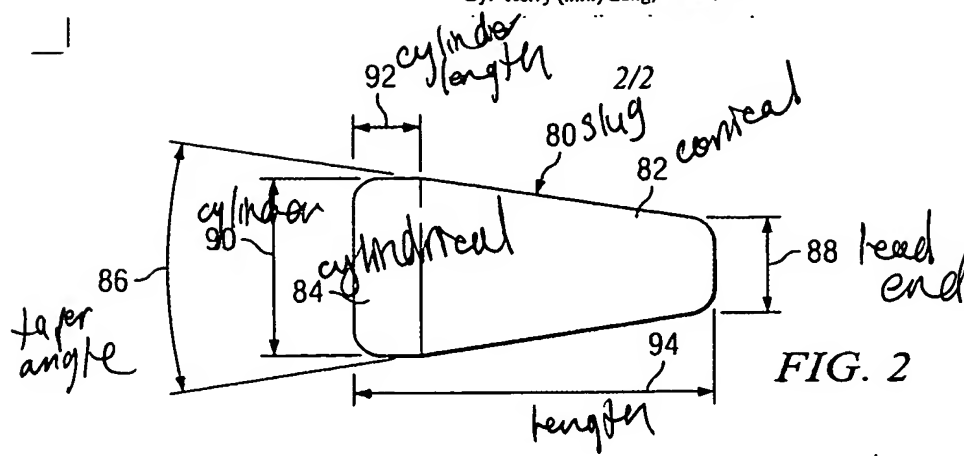 92 cylinder
length
2/2
80 slug
82 conical
cylinder
90
cylindrical
84
86
taper
angle
88 lead
end
94
length
FIG. 2